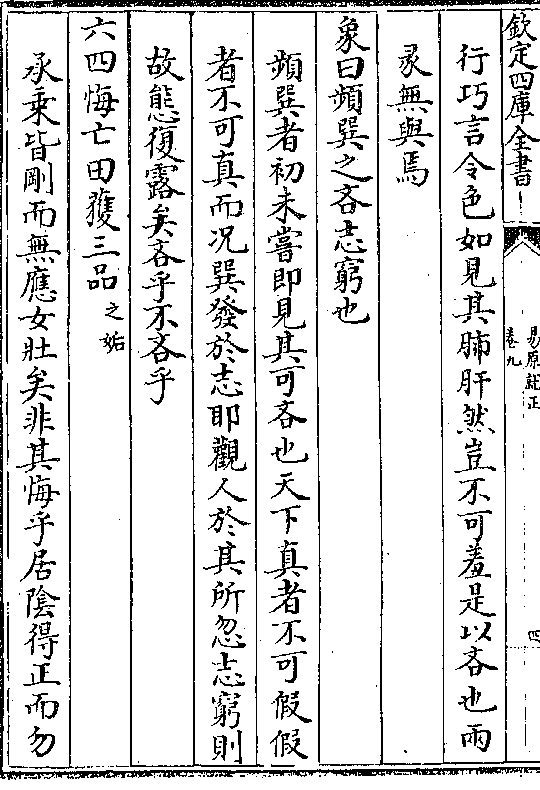 欽定四庫全書
易原就正
卷九
四
行巧言令色如見其肺肝然豈不可羞是以吝也兩
爻無與焉
象曰頻巽之吝志窮也
頻巽者初未嘗即見其可吝也天下真者不可假假
者不可真而况巽發於志耶觀人於其所忽志窮則
故態復露矣吝乎不吝乎
六四悔亡田獲三品之姤
承乘皆剛而無應女壯矣非其悔乎居陰得正而勿